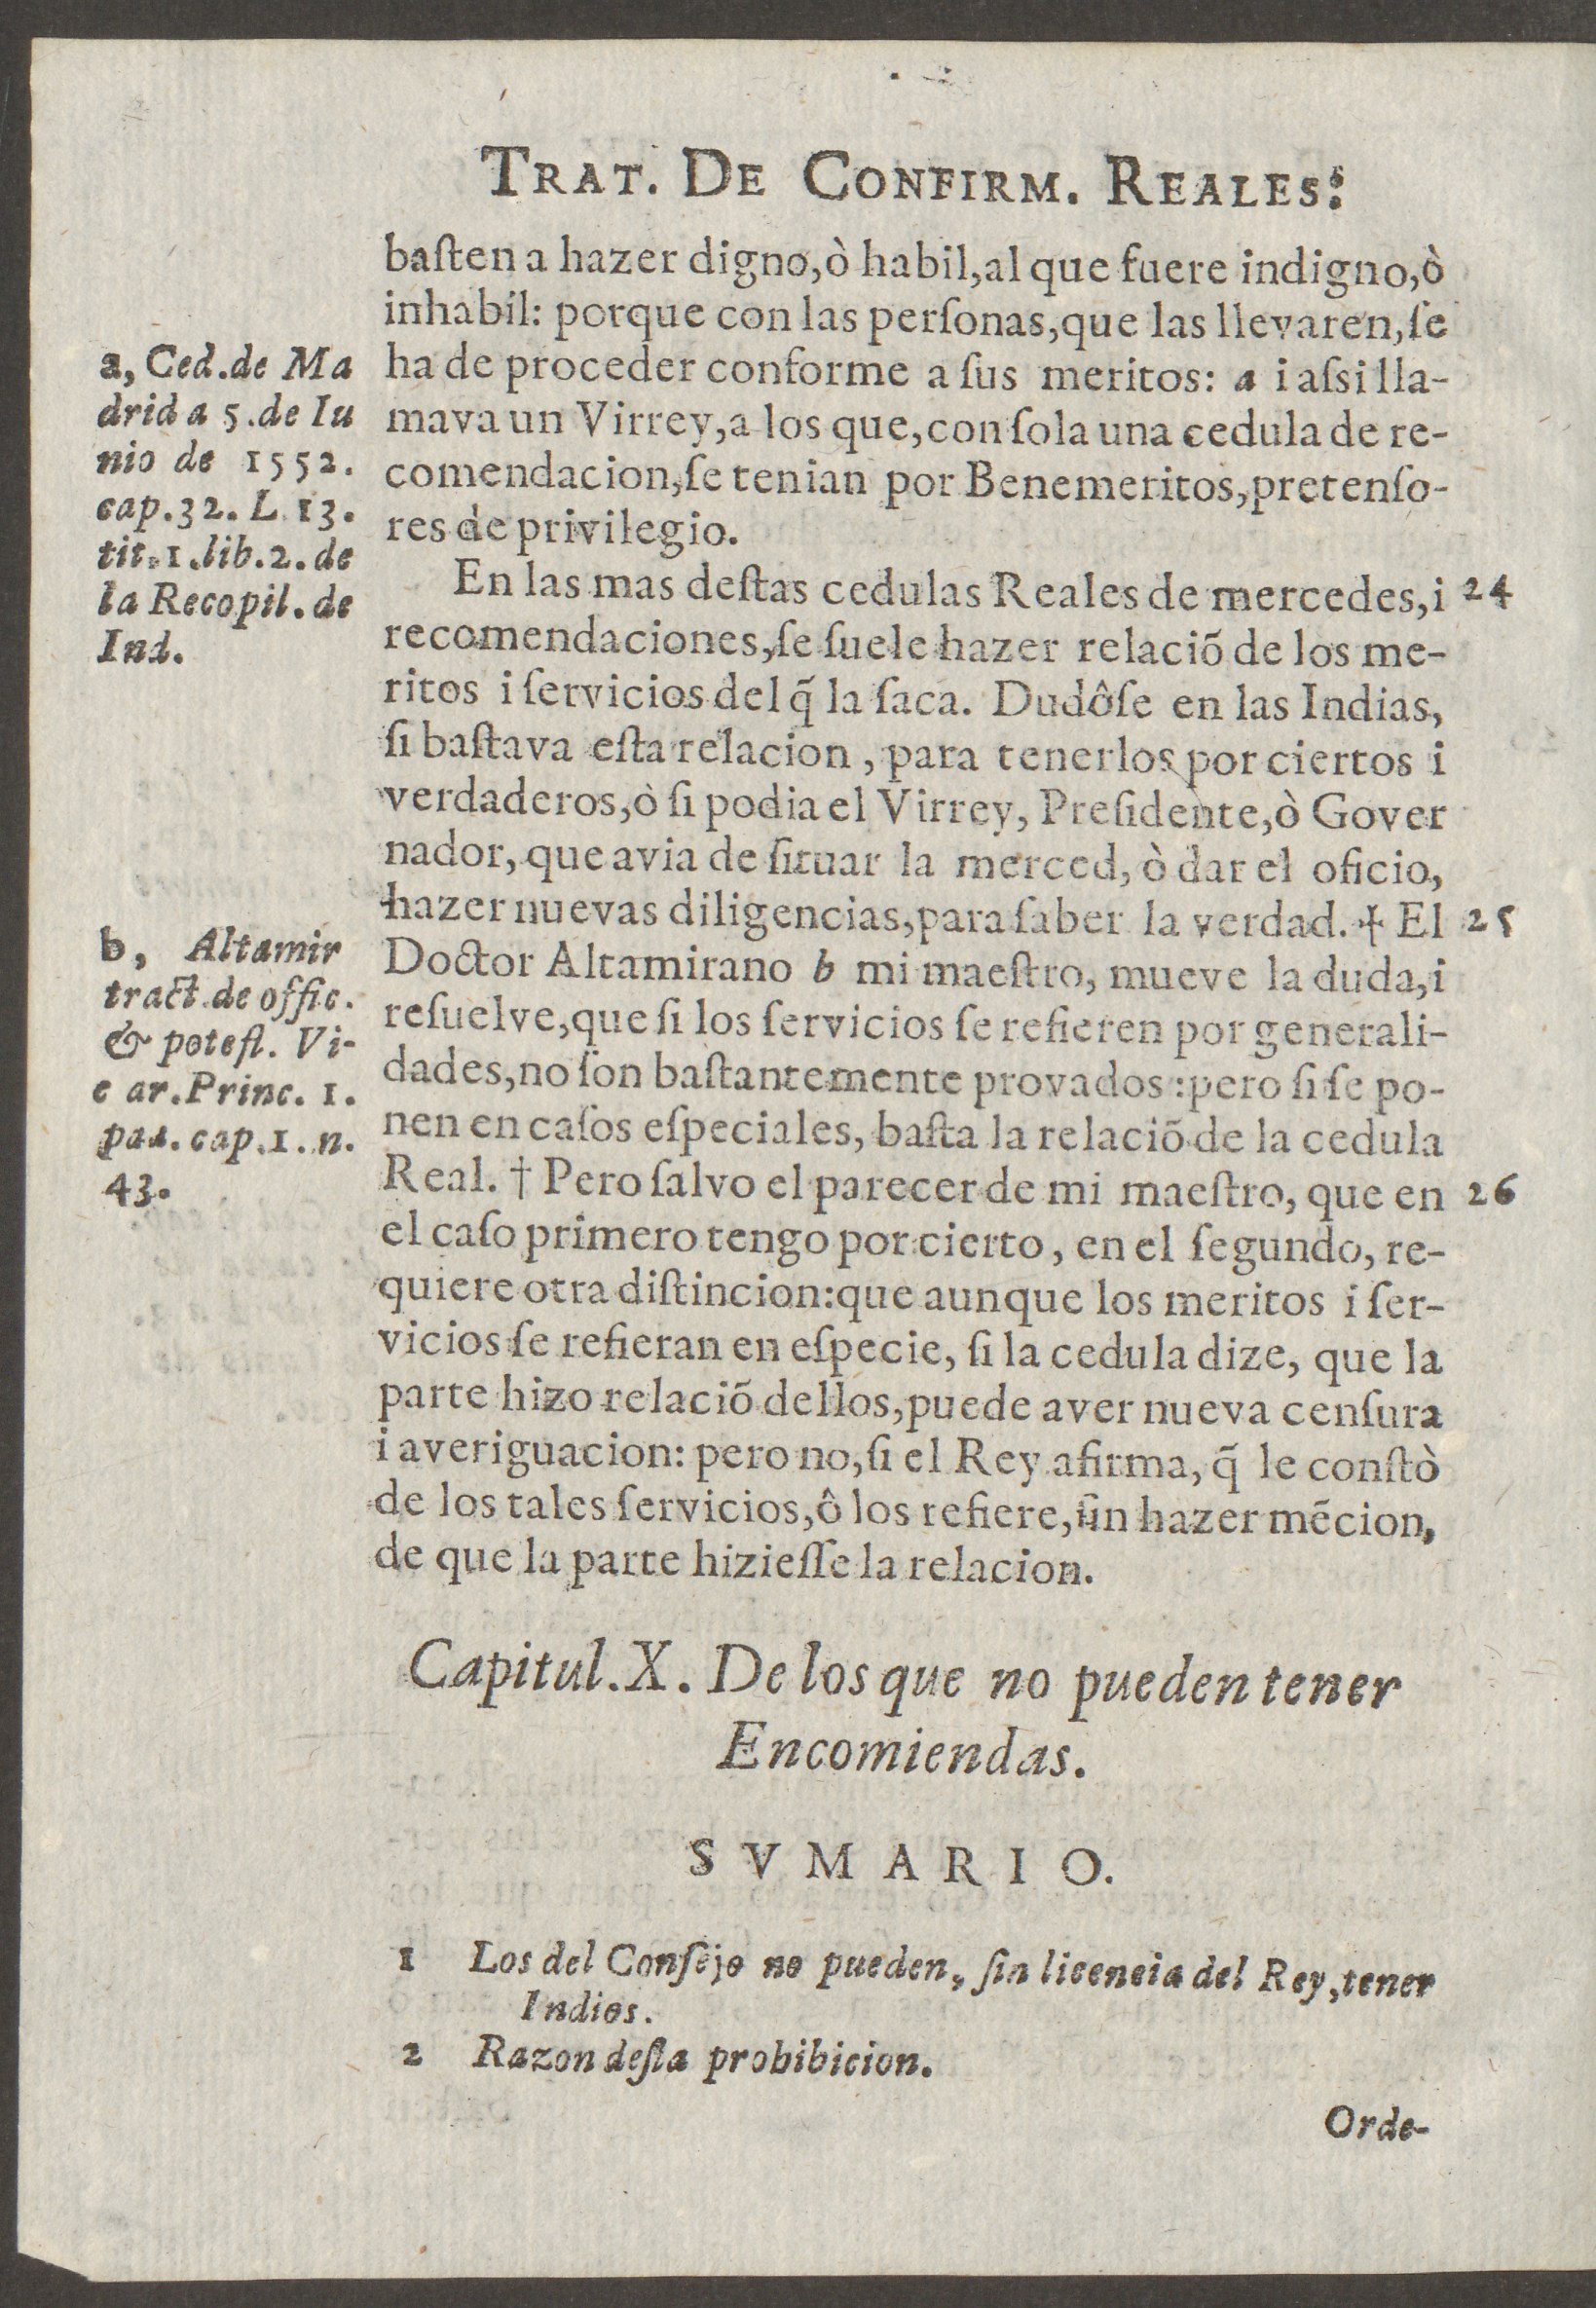 TRAT. DE CONFIRM. REALES:
baſten a hazer digno,ò habil,al que fuere indigno,ò
inhabil: porque con las perſonas,que las llevaren,ſe
ha de proceder conforme a ſus meritos: a i aſsi lla-
mava un Virrey,a los que,con ſola una cedula de re-
comendacion,ſe tenian por Benemeritos,pretenſo-
res de privilegio.
En las mas deſtas cedulas Reales de mercedes,i 24
recomendaciones,ſe ſuele hazer relaciõ de los me-
ritos i ſervicios del q̃ la ſaca. Dudôſe en las Indias,
ſi baſtava eſta relacion, para tenerlos por ciertos i
verdaderos,ò ſi podia el Virrey, Preſidente,ò Gover
nador, que avia de ſituar la merced, ò dar el oficio,
hazer nuevas diligencias,para ſaber la verdad. † El 25
Doctor Altamirano b mi maeſtro, mueve la duda,i
reſuelve,que ſi los ſervicios ſe refieren por generali-
dades,no ſon baſtantemente provados:pero ſi ſe po-
nen en caſos eſpeciales, baſta la relaciõ de la cedula
Real. † Pero ſalvo el parecer de mi maeſtro, que en 26
el caſo primero tengo por cierto, en el ſegundo, re-
quiere otra diſtincion:que aunque los meritos i ſer-
vicios ſe refieran en eſpecie, ſi la cedula dize, que la
parte hizo relaciõ dellos,puede aver nueva cenſura
i averiguacion: pero no,ſi el Rey afirma, q̃ le conſtò
de los tales ſervicios,ô los refiere,ſin hazer mẽcion,
de que la parte hizieſſe la relacion.
a, Ced.de Ma
drid a 5.de Iu
nio de 1552.
cap.32. L 13.
tit.1.lib.2.de
la Recopil.de
Ind.
b, Altamir
tract.de offic.
& poteſt. Vi-
c ar.Princ. 1.
par. cap.1. n.
43.
Capitul.X. De los que no pueden tener
Encomiendas.
SVMARIO.
1 Los del Conſejo no pueden, ſin licencia del Rey,tener
Indios.
2 Razon deſta prohibicion.
Orde-